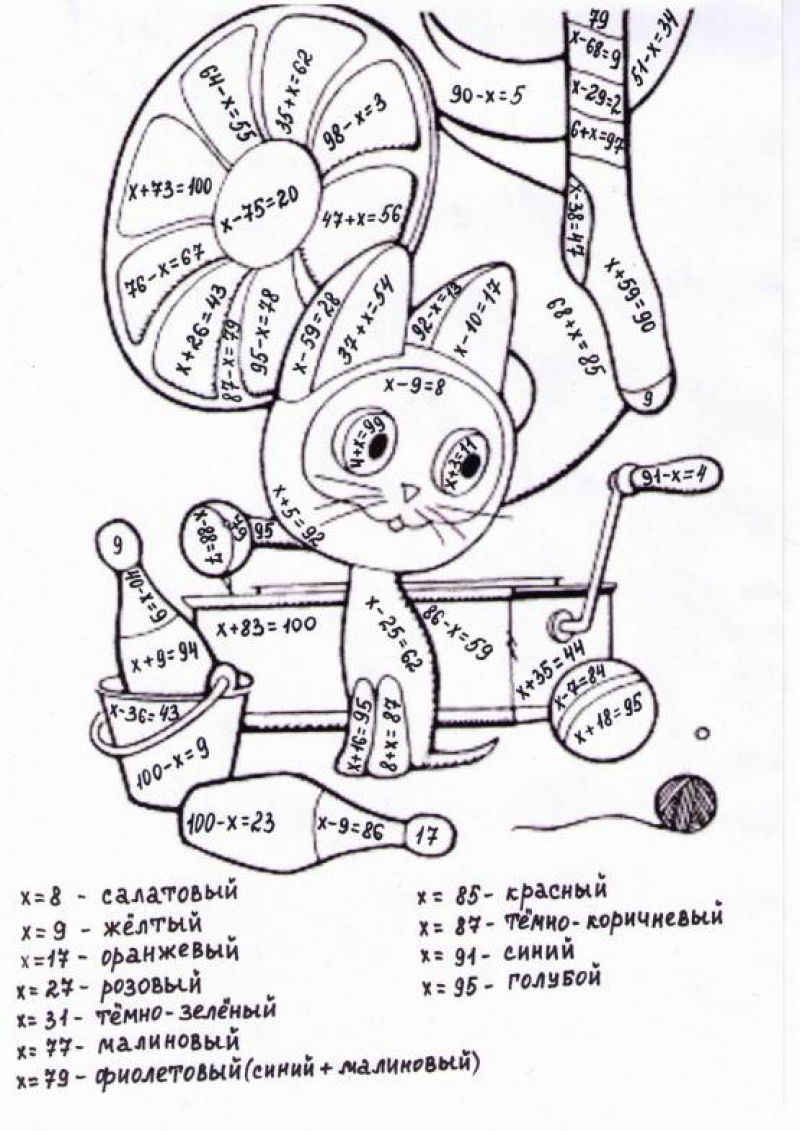 79
x-68=9
51-x=34
x-29=2
90-x=5
6+x=97
64-x=55
35+x=62
98-x=3
x+73=100
x-75=20
47+x=56
x-38=47
76-x=67
x+59=90
x+26=43
87-x=79
95-x=78
x-59=28
37+x=54
92-x=13
x-10=17
68+x=85
x-9=8
9
4+x=99
x+3=11
91-x=4
x+5=92
x-88=7
79
95
9
40-x=9
x+9=94
x+83=100
x-25=62
86-x=59
x+35=44
x-7=84
x+18=95
x-36=43
100-x=9
x+16=95
8+x=87
100-x=23
x-9=86
17
x=8 - салатовый
x=9 - жёлтый
x=17- оранжевый
x=27- розовый
x=31- тёмно-зелёный
x=77- малиновый
x=79- фиолетовый(синий+малиновый)
x= 85- красный
x= 87- тёмно-коричневый
x= 91- синий
x= 95- голубой